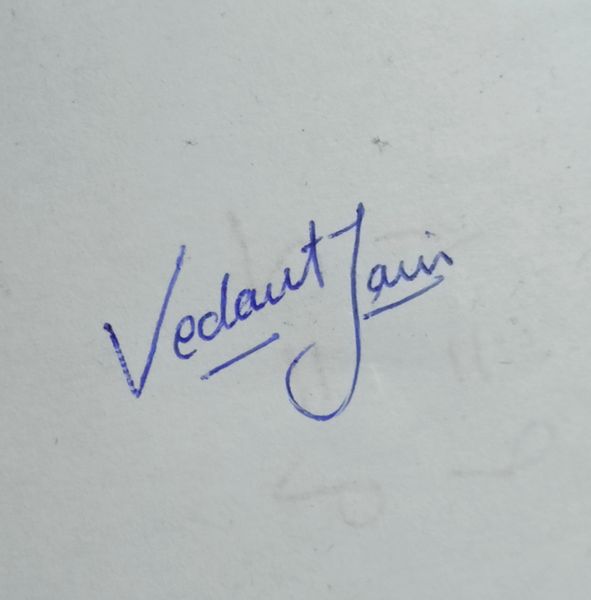 Vedant Jain